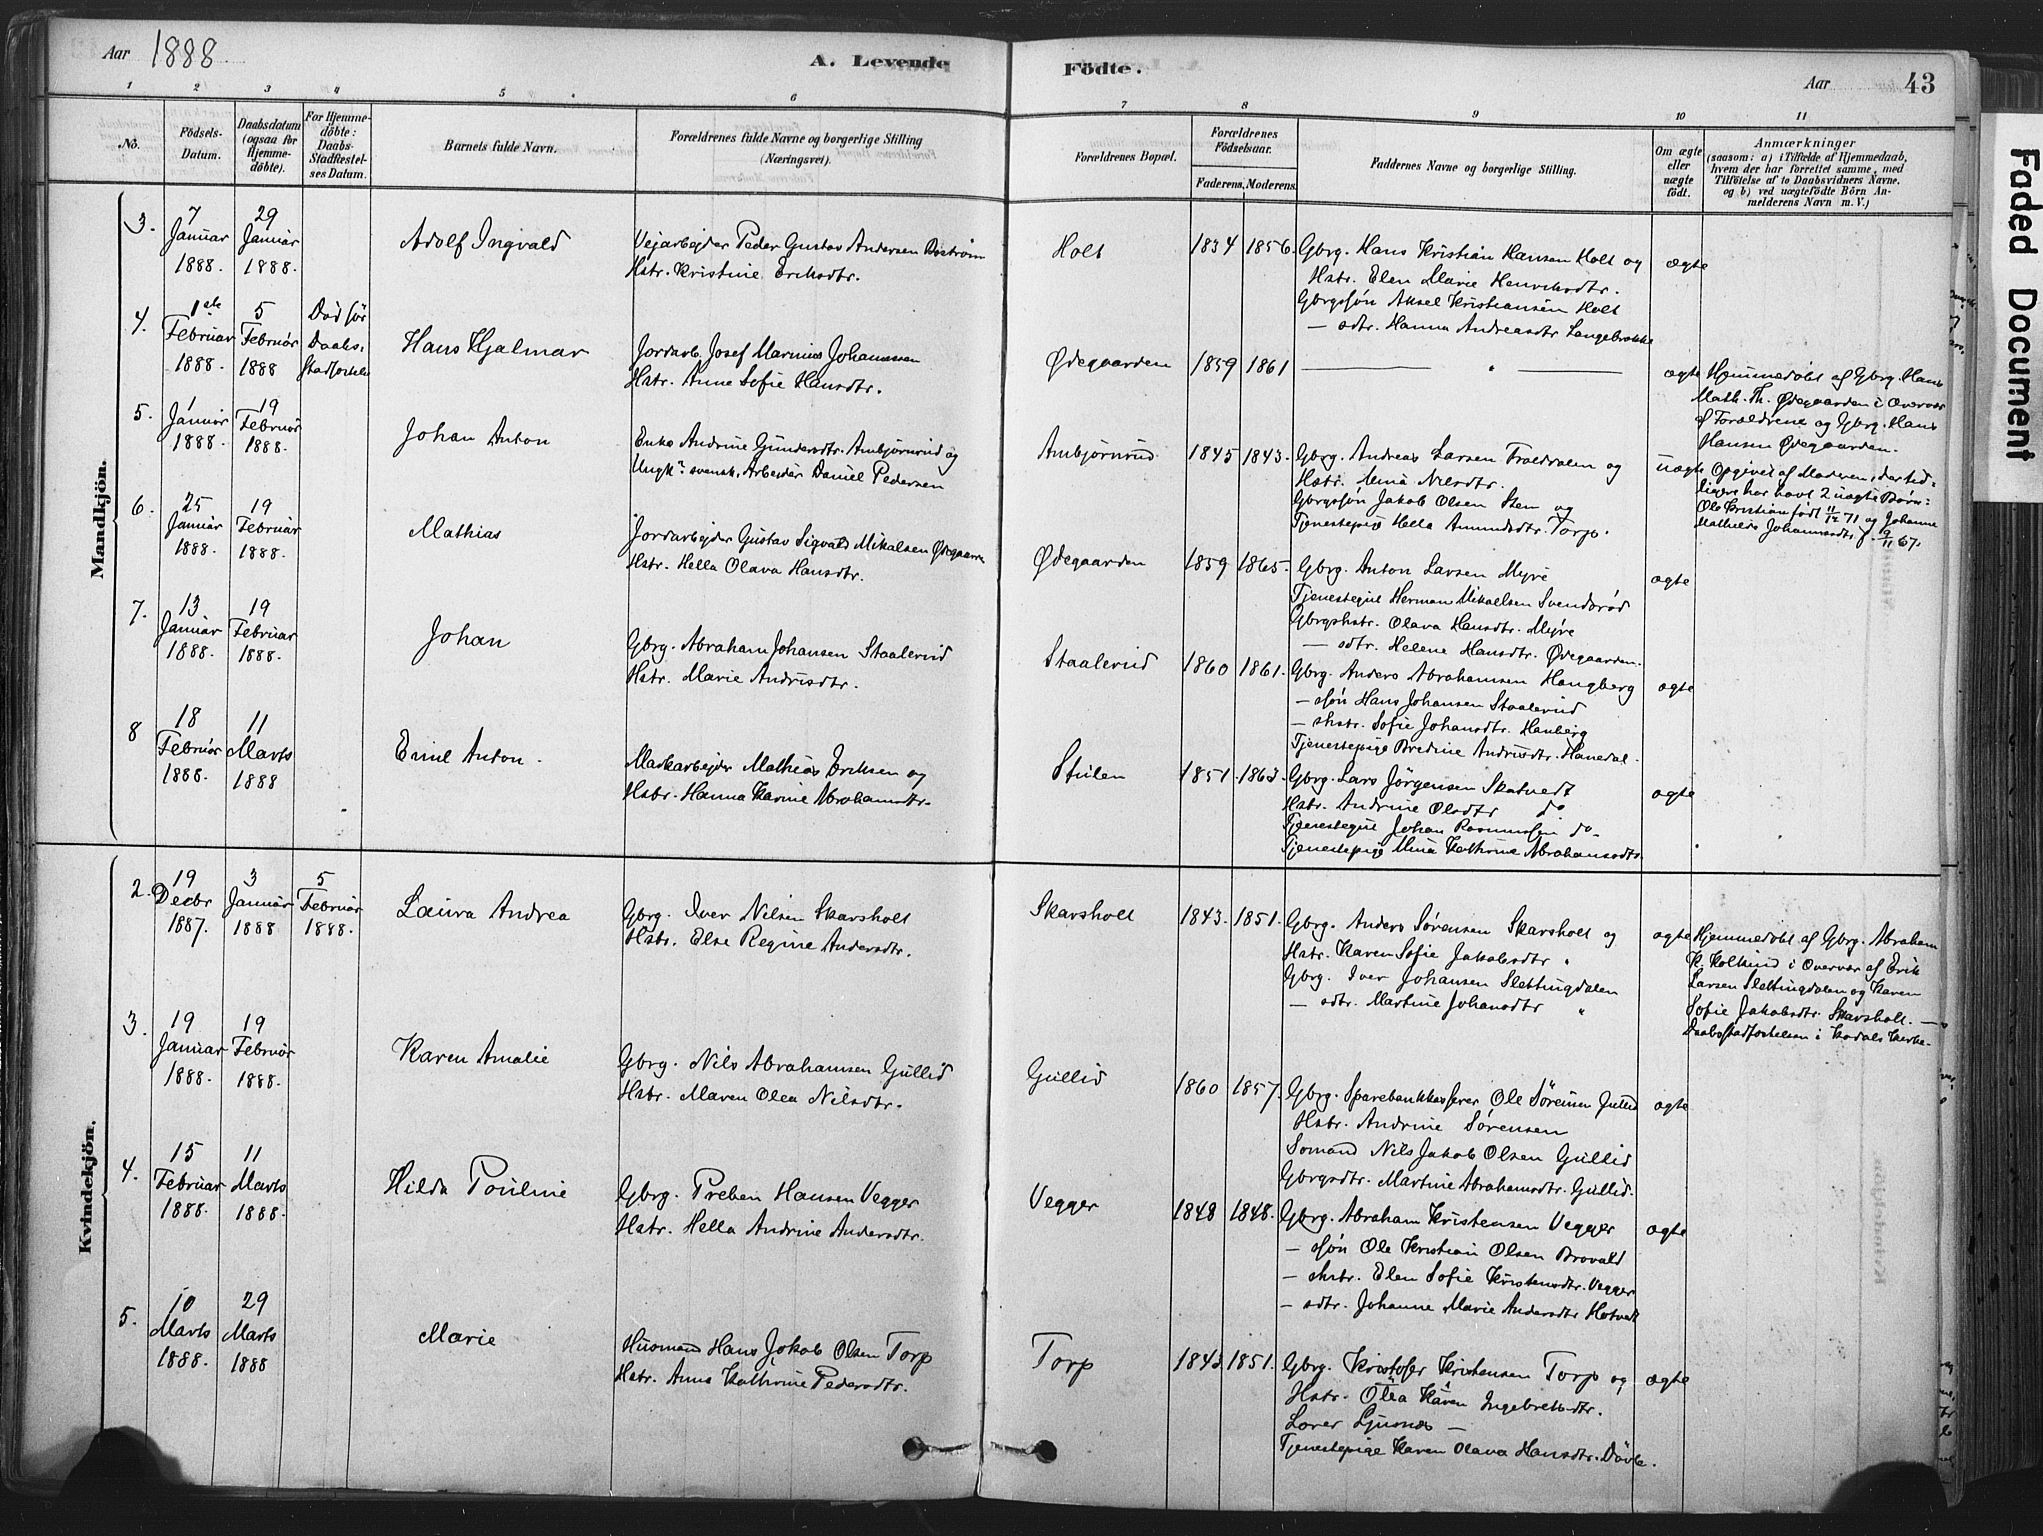 Aar 1888
A. Levende Födte.
Aar 43
1 2 3 4 5 6 7 8 9 10 11
No.
Födsels-Datum.
Daabsdatum (ogsaa for Hjemmedöbte).
For Hjemmedöbte: Daabs-Stadfæstelses Datum.
Barnets fulde Navn.
Forældrenes fulde Navne og borgerlige Stilling (Næringsvei).
Forældrenes Bopæl.
Forældrenes Födselsaar.
Faderens. Moderens.
Faddernes Navne og borgerlige Stilling.
Om ægte eller uægte födt.
Anmærkninger
(saasom: a) i Tilfælde af Hjemmedaab,
hvem der har forrettet samme, med
Tilföielse af to Daabsvidners Navne,
og b) ved uægtefödte Börn Anmelderens Navn m. V.)
Faded Document
Mandkjön.
3. 7 Januar 1888. 29 Januar 1888.
Adolf Ingvald
Vejarbejder Peder Gustav Andersen
Hstr. Kristine Eriksdtr.
Holt 1834 1856.
Gbrg. Hans Kristian Hansen Holt og
Hstr. Elen Marie Henriksdtr.
Gbrgssøn Aksel Kristiansen Holt
— sdtr. Hanna Andreasdtr Langebrække
ægte
4. 1ste Februar 1888. 5 Februar 1888
Daabs.
Hans Hjalmar
Jordarb. Josef Marinius Johannssen
Hstr. Anne Sofie Hansdtr.
Ødegaarden 1859 1861
— " —
ægte
Hjemmedøbt af Gbrg. Hans
Math. Th. Ødegaarden i Overvær
af Forældrene og Gbrg. Hans
Hansen Ødegaarden.
5. 1 Januar 1888. 19 Februar 1888.
Johan Anton
Enke Andrine Gundersdtr. Ambjørnrud og
Ungk. svensk. Arbejder Daniel Pedersen
Ambjørnrud 1845 1843.
Gbrg. Andreas Larsen Trældalen og
Hstr. Mina Nilsdtr.
Gbrgssøn Jakob Olsen Sten og
Tjenestepige Hella Amundsdtr. Torp.
uægte
Opgivet af Moderen, der tid-
ligere har havt 2 uægte Børn:
Ole Kristian født 11/12 71 og Johanne
Mathilde Johannesdtr f. 9/11 67.
6. 25 Januar 1888. 19 Februar 1888.
Mathias
Jordarbejder Gustav Sigvald Mikalsen Ødegaarden
Hstr. Hella Olava Hansdtr.
Ødegaarden 1859 1865.
Gbrg. Anton Larsen Myre
Tjenestegut Herman Mikaelsen Svendsrød
Gbrgshstr. Olava Hansdtr. Myre
— sdtr. Helene Hansdtr. Ødegaarden.
ægte
7. 13 Januar 1888. 19 Februar 1888.
Johan
Gbrg. Abraham Johansen Staalerud
Hstr. Marie Andrisdtr.
Staalerud 1860 1861.
Gbrg. Anders Abrahamsen Haugberg
— ssøn Hans Johansen Staalerud
— shstr. Sofie Johansdtr. Hauberg
Tjenestepige Bredine Andrisdtr. Hanedal.
ægte
8 18 Februar 1888. 11 Marts 1888
Emil Anton.
Markarbejder Mathias Eriksen og
Hstr. Hanna Karine Abrahamsdtr.
Stulen 1851. 1863.
Gbrg. Lars Jörgensen Skatvedt
Hstr. Andrine Olsdtr do
Tjenestegut Johan Rasmussen do
Tjenestepige Mina Kathrine Abrahamsdtr.
ægte
Kvindekjön.
2. 19 Decbr 1887. 3 Januar 1888 5 Februar 1888.
Laura Andrea
Gbrg. Iver Nilsen Skarsholt
Hstr. Else Regine Andersdtr.
Skarsholt 1843. 1851.
Gbrg. Anders Sørensen Skarsholt og
Hstr. Karen Sofie Jakobsdtr "
Gbrg. Iver Johansen Slettingdalen
— sdtr. Martine Johansdtr "
ægte
Hjemmedøbt af Gbrg. Abraham
K. Kolkind i Overvær af Erik
Larsen Slettingdalen og Karen
Sofie Jakobsdtr. Skarsholt. —
Daabsstadfæstelsen i Kodals Kirke.
3. 19 Januar 1888. 19 Februar 1888.
Karen Amalie
Gbrg. Nils Abrahamsen Gullid
Hstr. Maren Olea Nilsdtr.
Gullid 1860 1857.
Gbrg. Sparebankkasserer Ole Sørensen Gullid
Hstr. Andrine Sørensen
Sømand Nils Jakob Olsen Gullid
Gbrgsdtr. Martine Abrahamsdtr. Gullid.
ægte
4. 15 Februar 1888. 11 Marts 1888.
Hilda Pouline
Gbrg. Preben Hansen Vegger
Hstr. Hella Andrine Andersdtr.
Vegger 1848 1848.
Gbrg. Abraham Kristensen Vegger
— ssøn Ole Kristian Olsen Brovald
— shstr. Elen Sofie Kristensdtr. Vegger
— sdtr. Johanne Marie Andersdtr Hotvedt
ægte
5. 10 Marts 1888. 29 Marts 1888
Marie
Husmand Hans Jakob Olsen Torp
Hstr. Anne Kathrine Pedersdtr.
Torp 1843 1851.
Gbrg. Kristofer Kristensen Torp og
Hstr. Olea Karen Ingebretsdtr.
Lærer Ljusnæs —
Tjenestepige Karen Olava Hansdtr.
ægte